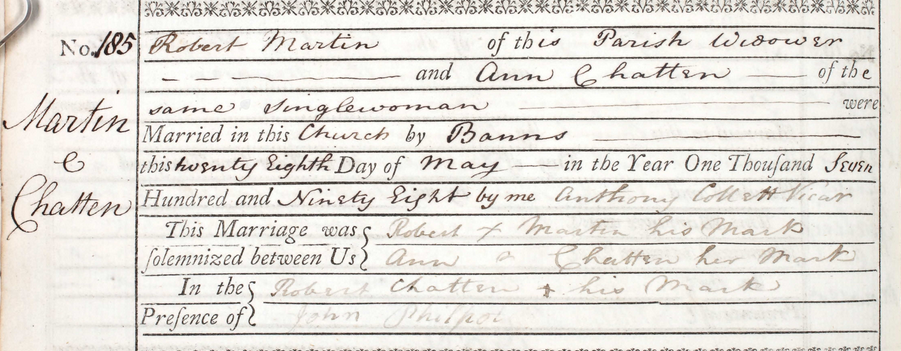 No. 185 Robert Martin of this Parish Widower
and Ann Chatten of the
same Singlewoman were
Married in this Church by Banns
this twenty Eighth Day of May in the Year One Thousand Seven
Hundred and Ninety Eight by me Anthony Collett Vicar
This Marriage was Robert x Martin his Mark
solemnized between Us Ann Chatten her Mark
In the Robert Chatten + his Mark
Presence of John Philpot
Martin
&
Chatten